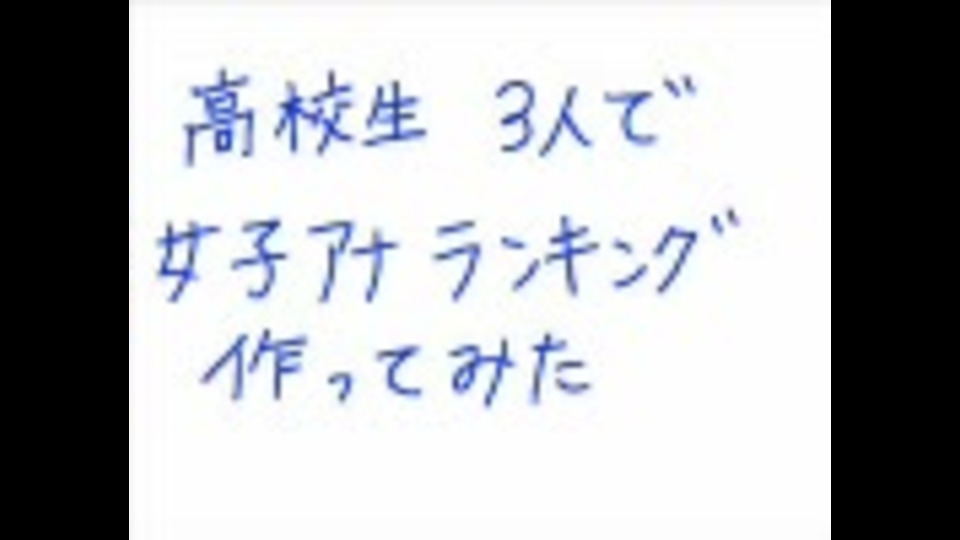 高校生 3人で
女子アナ ランキング
作ってみた